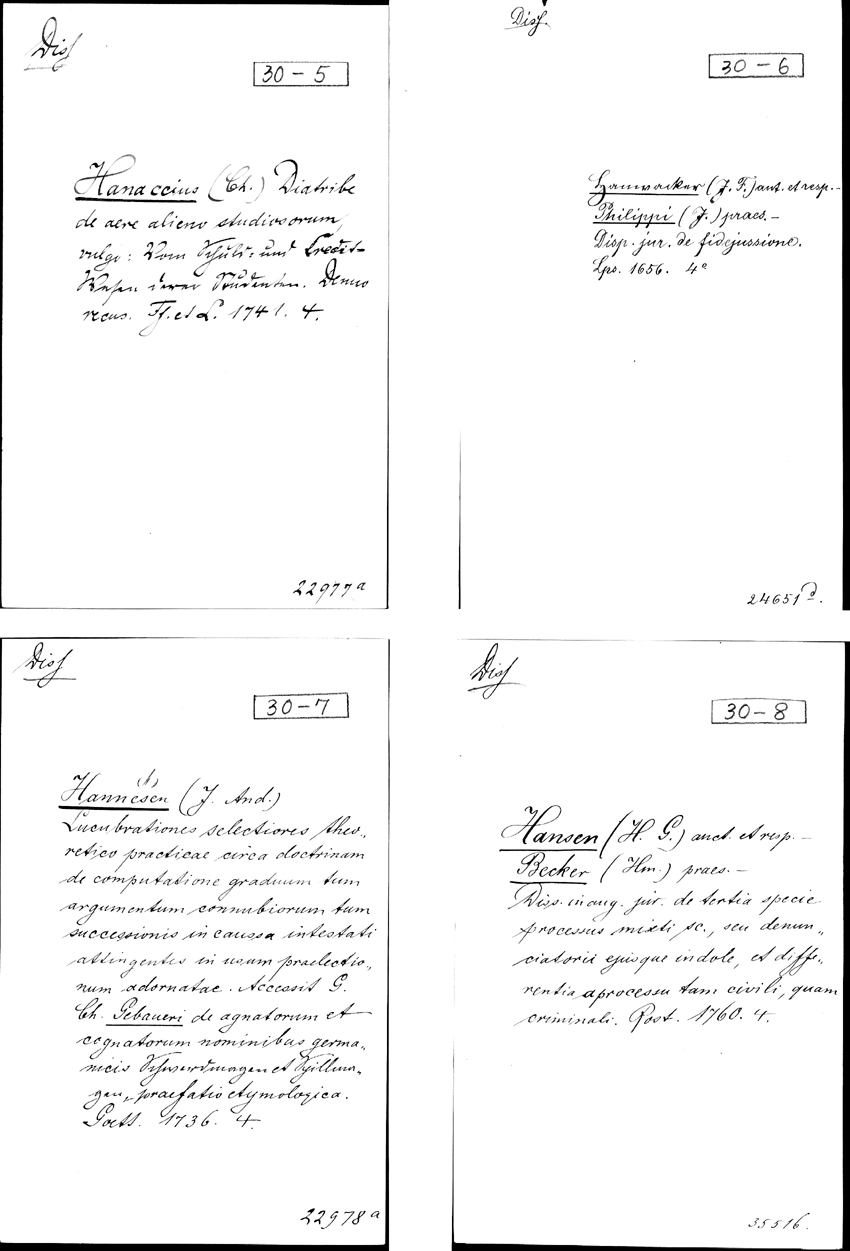 Diss
30-5
Hanaccius (Ch.) Diatribe
de aere alieno studiosorum,
vulgo: Vom Schuld- und Credit-
Wesen derer Studenten. Denuo
recus. Ff. et L. 1741. 4.
22977a
Diss.
30-6
Hanwacker (J. F.) aut. et resp.-
Philippi (J.) praes.-
Disp. jur. de fidejussione.
Lps. 1656. 4o
24651d.
Diss
30-7
(h)
Hannesen (J. And.)
Lucubrationes selectiores theo„
retico practicae circa doctrinam
de computatione graduum tum
argumentum connubiorum tum
successionis in caussa intestati
attingentis in usum praelectio„
num adornatae. Accessit G.
Ch. Gebaueri de agnatorum et
cognatorum nominibus germa„
nicis Schwerdmagen et Spillma„
gen„ praefatio etymologica.
Goett. 1736. 4.
22978a
Diss
30-8
Hansen (H. G.) auct. et resp.-
Becker (Hm.) praes.-
Diss. inaug. jur. de tertia specie
processus mixti, sc., seu denun„
ciatorii ejusque indole, et diffe„
rentia a processu tam civili, quam
criminali. Rost. 1760. 4.
35516.